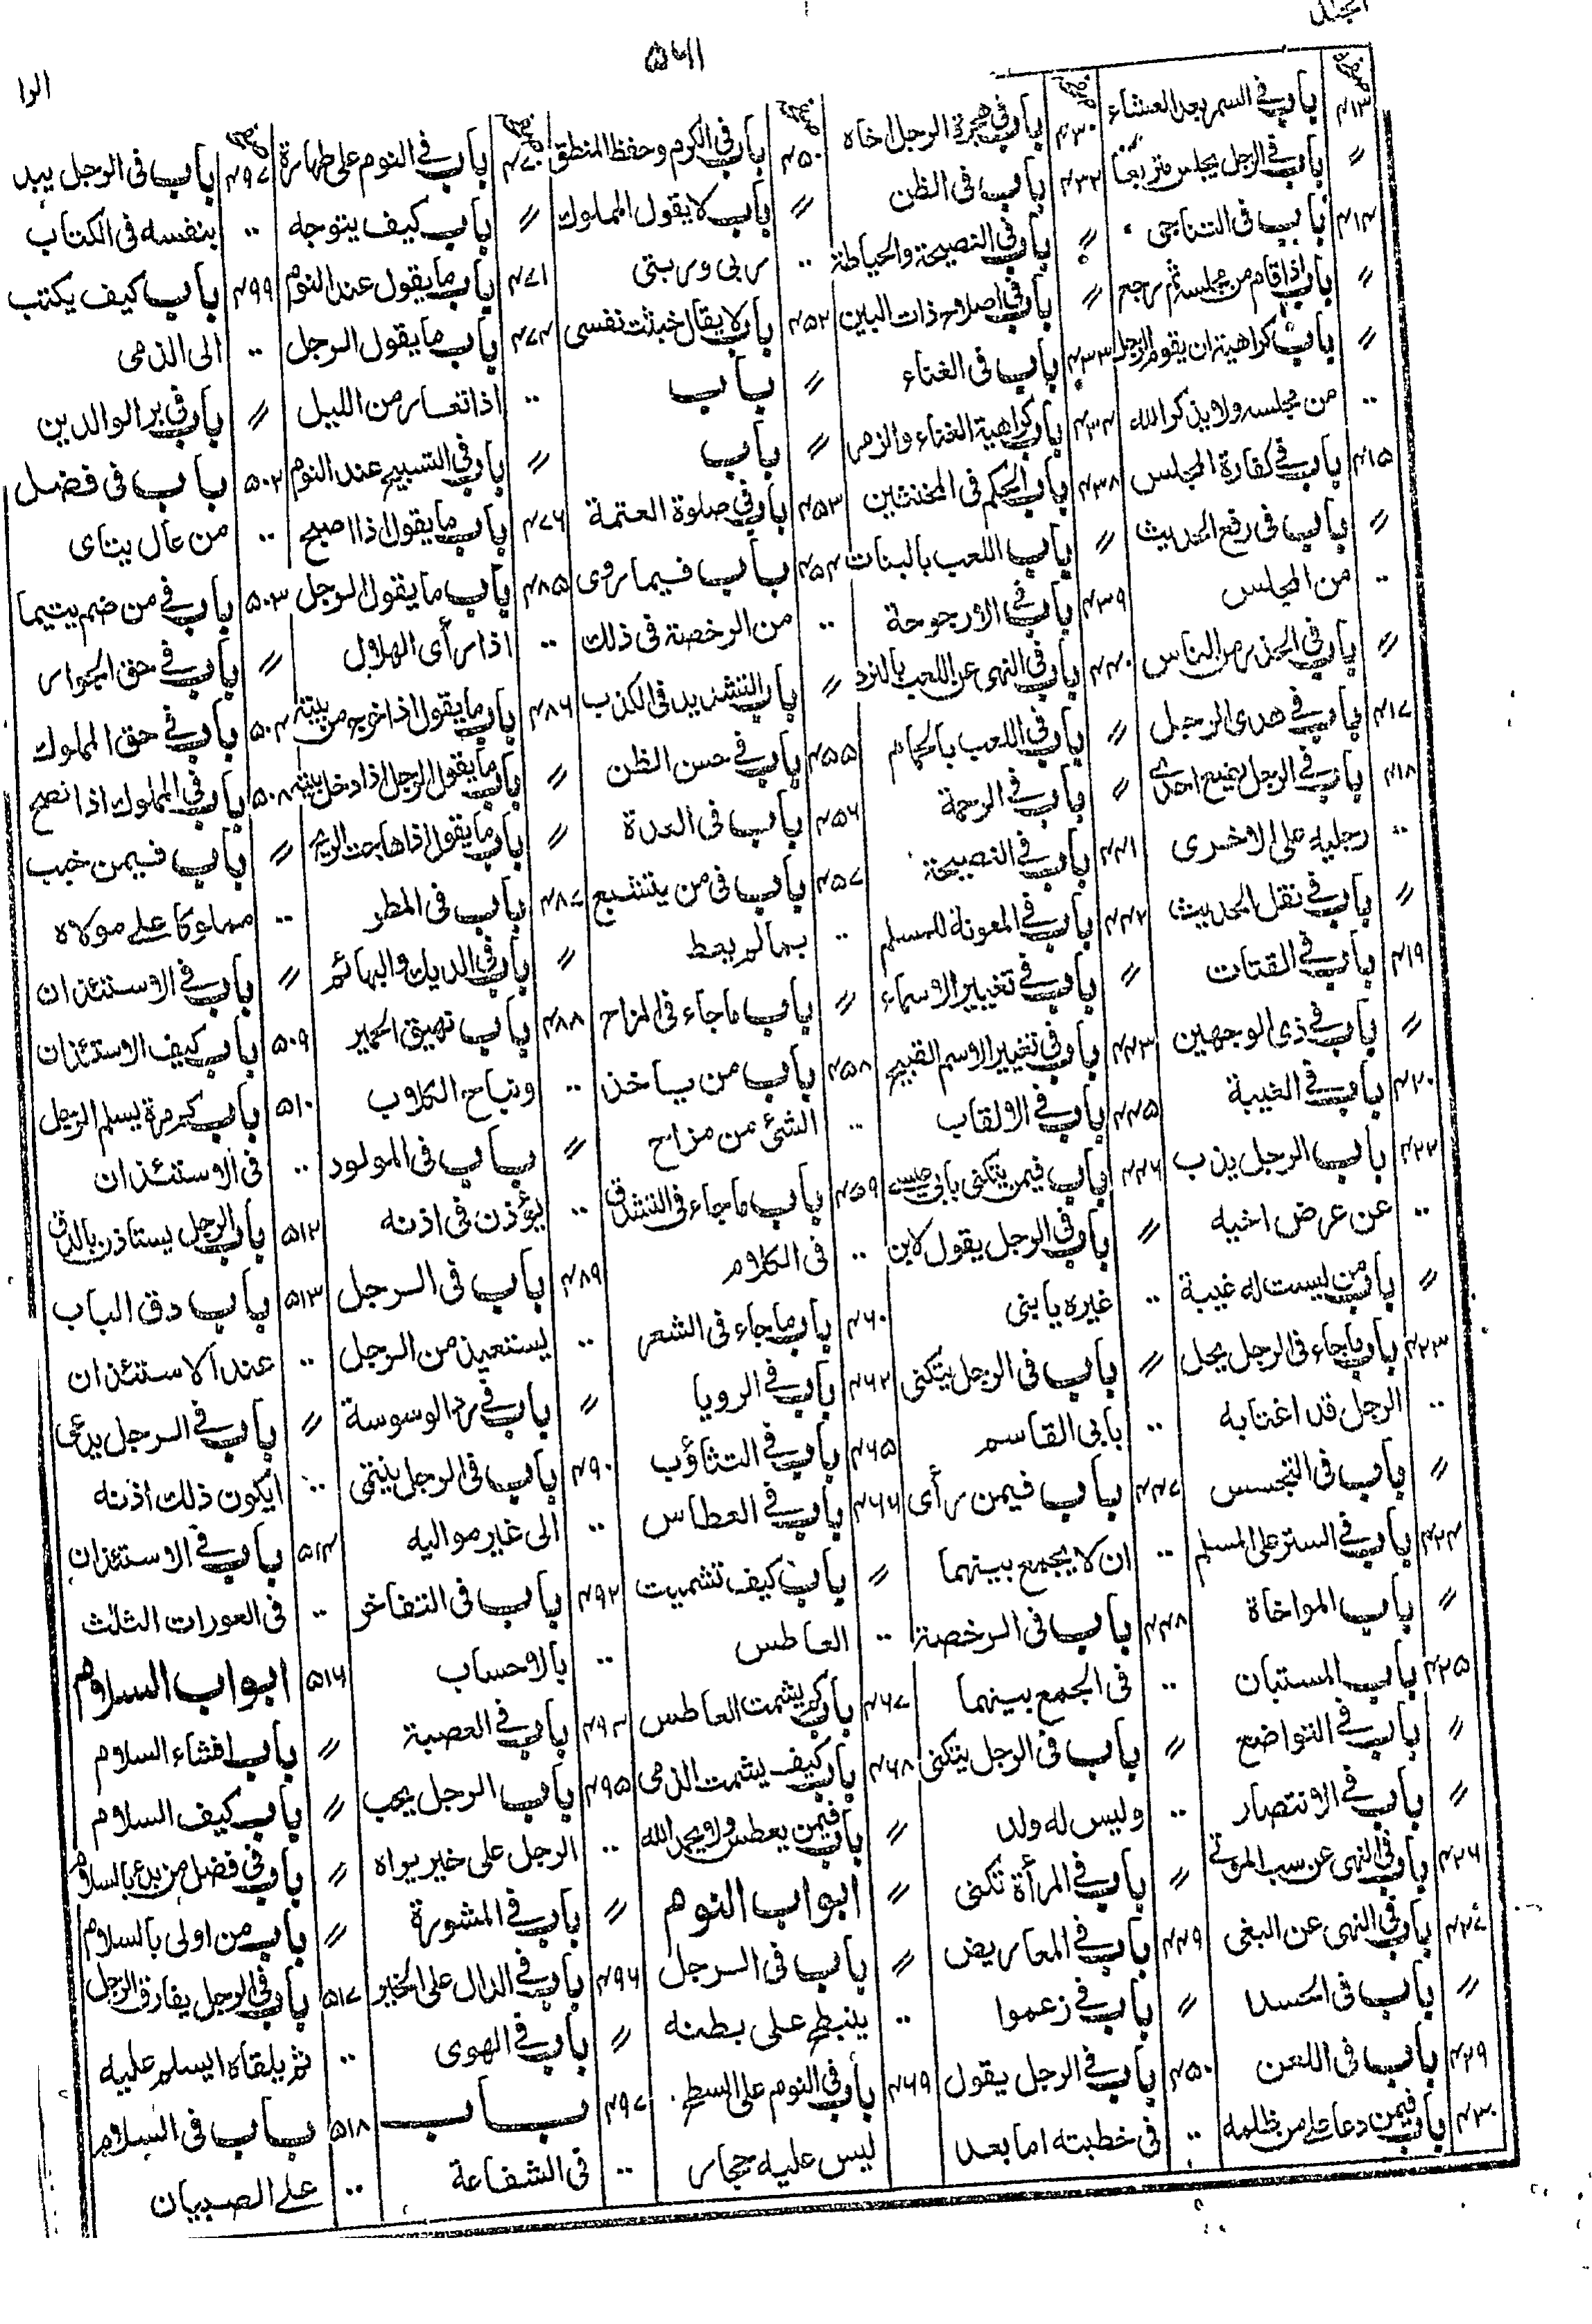 ۵۶۱
باب في السمر بعد العشاء ۴۱۳
باب في الرجل يجلس متربعا 〃
باب في التناجى ۴۱۴
باب اذا قام من مجلسه ثم رجع 〃
باب كراهية ان يقوم الرجل 〃
من مجلسه ولا يذكر الله ..
باب في كفارة المجلس ۴۱۵
باب في رفع الحديث 〃
من المجلس ..
باب في الحذر من الناس 〃
باب في هدى الرجل ۴۱۷
باب في الرجل يضع احدى ۴۱۸
رجليه على الاخرى ..
باب في نقل الحديث 〃
باب في القتات ۴۱۹
باب في ذى الوجهين 〃
باب في الغيبة ۴۲۰
باب الرجل يذب ۴۲۲
عن عرض اخيه ..
باب من ليست له غيبة 〃
باب ما جاء في الرجل يحل ۴۲۳
الرجل قد اغتابه ..
باب في التجسس 〃
باب في الستر على المسلم ۴۲۴
باب المواخاة 〃
باب المستبان ۴۲۵
باب في التواضع 〃
باب في الانتصار 〃
باب في النهى عن سب الموتى ۴۲۶
باب في النهى عن البغى ۴۲۷
باب في الحسد 〃
باب في اللعن ۴۲۹
باب فيمن دعا على من ظلمه ۴۳۰
باب في هجرة الرجل اخاه ۴۳۰
باب في الظن ۴۳۲
باب في النصيحة والحياطة 〃
باب في اصلاح ذات البين 〃
باب في الغناء ۴۳۳
باب كراهية الغناء والزمر ۴۳۴
باب الحكم في المخنثين ۴۳۸
باب اللعب بالبنات 〃
باب في الارجوحة ۴۳۹
باب في النهى عن اللعب بالنرد ۴۴۰
باب في اللعب بالحمام 〃
باب في الرحمة 〃
باب في النصيحة ۴۴۱
باب في المعونة للمسلم ۴۴۲
باب في تغيير الاسماء 〃
باب في تغيير الاسم القبيح ۴۴۳
باب في الالقاب ۴۴۵
باب فيمن يتكنى بابى عيسى ۴۴۶
باب في الرجل يقول لابن 〃
غيره يا بنى ..
باب في الرجل يتكنى 〃
بابى القاسم ..
باب فيمن رأى ۴۴۷
ان لا يجمع بينهما ..
باب في الرخصة ۴۴۸
في الجمع بينهما ..
باب في الرجل يتكنى 〃
وليس له ولد ..
باب في المرأة تكنى 〃
باب في المعاريض ۴۴۹
باب في زعموا 〃
باب في الرجل يقول ۴۵۰
في خطبته اما بعد ..
باب في الكرم وحفظ المنطق ۴۵۰
باب لا يقول المملوك 〃
ربى وربتى ..
باب لا يقال خبثت نفسى ۴۵۲
باب 〃
باب 〃
باب في صلوة العتمة ۴۵۳
باب فيما روى ۴۵۴
من الرخصة في ذلك ..
باب التشديد في الكذب 〃
باب في حسن الظن ۴۵۵
باب في العدة ۴۵۶
باب في من يتشبع ۴۵۷
بما لم يعط ..
باب ما جاء في المزاح 〃
باب من ياخذ ۴۵۸
الشئ من مزاح ..
باب ما جاء في التشدق ۴۵۹
في الكلام ..
باب ما جاء في الشعر ۴۶۰
باب في الرويا ۴۶۲
باب في التثاؤب ۴۶۵
باب في العطاس ۴۶۶
باب كيف تشميت 〃
العاطس ..
باب كم يشمت العاطس ۴۶۷
باب كيف يشمت الذمى ۴۶۸
باب فيمن يعطس ولا يحمد الله 〃
ابواب النوم 〃
باب في الرجل 〃
ينبطح على بطنه ..
باب في النوم على السطح ۴۶۹
ليس عليه حجار
باب في النوم على طهارة ۴۷۰
باب كيف يتوجه 〃
باب ما يقول عند النوم ۴۷۱
باب ما يقول الرجل ۴۷۴
اذا تعار من الليل ..
باب في التسبيح عند النوم 〃
باب ما يقول اذا اصبح ۴۷۶
باب ما يقول الرجل ۴۸۵
اذا رأى الهلال ..
باب ما يقول اذا خرج من بيته ۴۸۶
باب ما يقول الرجل اذا دخل بيته 〃
باب ما يقول اذا هاجت الريح 〃
باب في المطر ۴۸۷
باب في الديك والبهائم 〃
باب نهيق الحمير ۴۸۸
ونباح الكلاب ..
باب في المولود 〃
يؤذن في اذنه ..
باب في الرجل ۴۸۹
يستعيذ من الرجل ..
باب في رد الوسوسة 〃
باب في الرجل ينتمى ۴۹۰
الى غير مواليه ..
باب في التفاخر ۴۹۲
بالاحساب ..
باب في العصبية ۴۹۳
باب الرجل يحب ۴۹۵
الرجل على خير يراه ..
باب في المشورة 〃
باب في الدال على الخير ۴۹۶
باب في الهوى 〃
باب ۴۹۷
في الشفاعة ..
باب في الرجل يبد ۴۹۷
بنفسه في الكتاب ..
باب كيف يكتب ۴۹۹
الى الذمى ..
باب في بر الوالدين 〃
باب في فضل ۵۰۲
من عال يتاى ..
باب في من ضم يتيما ۵۰۳
باب في حق الجوار 〃
باب في حق المملوك ۵۰۴
باب في المملوك اذا نصح ۵۰۸
باب فيمن خبب 〃
مملوكا على مولاه ..
باب في الاستئذان 〃
باب كيف الاستئذان ۵۰۹
باب كم مرة يسلم الرجل ۵۱۰
في الاستئذان ..
باب الرجل يستاذن بالدق ۵۱۲
باب دق الباب ۵۱۳
عند الاستئذان ..
باب في الرجل يدعى 〃
ايكون ذلك اذنه ..
باب في الاستئذان ۵۱۴
في العورات الثلث ..
ابواب السلام ۵۱۶
باب افشاء السلام 〃
باب كيف السلام 〃
باب في فضل من بدء بالسلام 〃
باب من اولى بالسلام 〃
باب في الرجل يفارق الرجل ۵۱۷
ثم يلقاه ايسلم عليه ..
باب في السلام ۵۱۸
على الصبيان ..